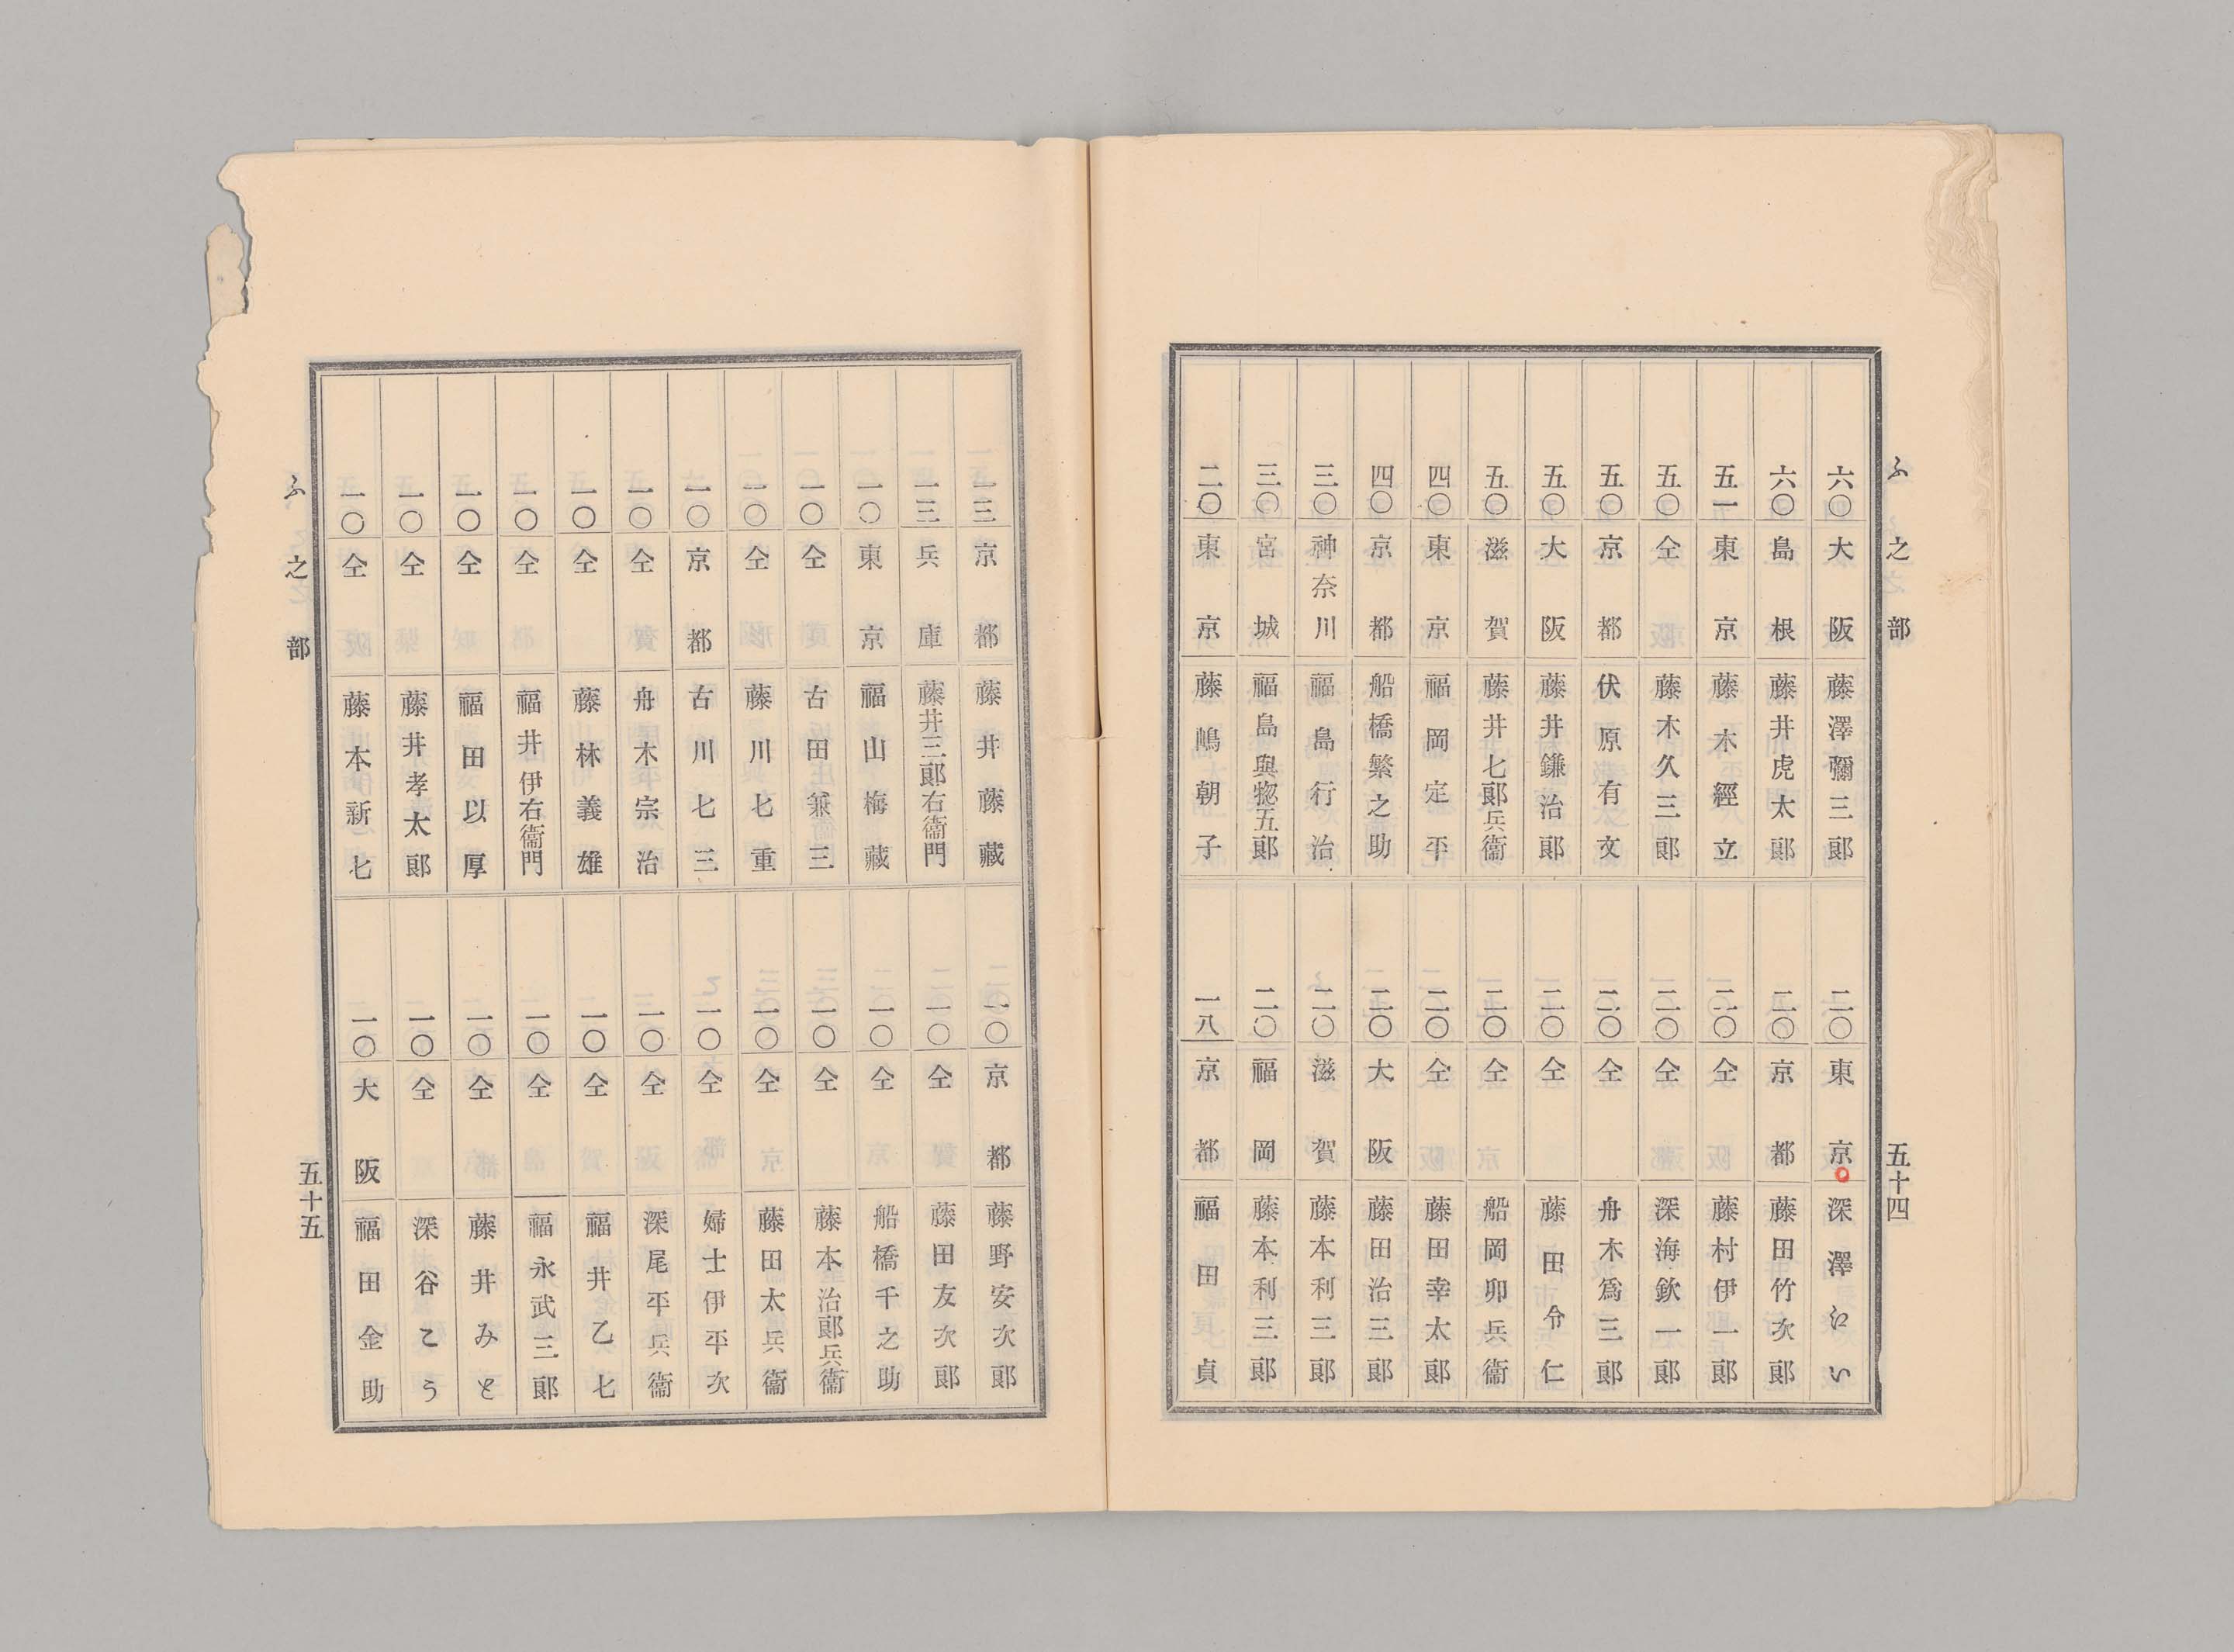 ふ之部
六〇 大阪 藤澤彌三郞
六〇 島根 藤井虎太郞
五一 東京 藤木經立
五〇 仝 藤木久三郞
五〇 京都 伏原有文
五〇 大阪 藤井鎌治郞
五〇 滋賀 藤井七郞兵衞
四〇 東京 福岡定平
四〇 京都 船橋繁之助
三〇 神奈川 福島行治
三〇 宮城 福島與惣五郞
二〇 東京 藤嶋朝子
二〇 東京 深澤れい
二〇 京都 藤田竹次郞
二〇 仝 藤村伊一郞
二〇 仝 深海欽一郞
二〇 仝 舟木爲三郞
二〇 仝 藤田令仁
二〇 仝 船岡卯兵衞
二〇 仝 藤田幸太郞
二〇 大阪 藤田治三郞
二〇 滋賀 藤本利三郞
二〇 福岡 藤本利三郞
一八 京都 福田貞
五十四
一三 京都 藤井藤藏
一三 兵庫 藤井三郞右衞門
一〇 東京 福山梅藏
一〇 仝 古田兼三
一〇 仝 藤川七重
一〇 京都 古川七三
一〇 仝 舟木宗治
一〇 仝 藤林義雄
一〇 仝 福井伊右衞門
一〇 仝 福田以厚
一〇 仝 藤井孝太郞
一〇 仝 藤本新七
一〇 京都 藤野安次郞
一〇 仝 藤田友次郞
一〇 仝 船橋千之助
一〇 仝 藤本治郞兵衞
一〇 仝 藤田太兵衞
一〇 仝 婦士伊平次
一〇 仝 深尾平兵衞
一〇 仝 福井乙七
一〇 仝 福永武三郞
一〇 仝 藤井みと
一〇 仝 深谷こう
一〇 大阪 福田金助
ふ之部
五十五